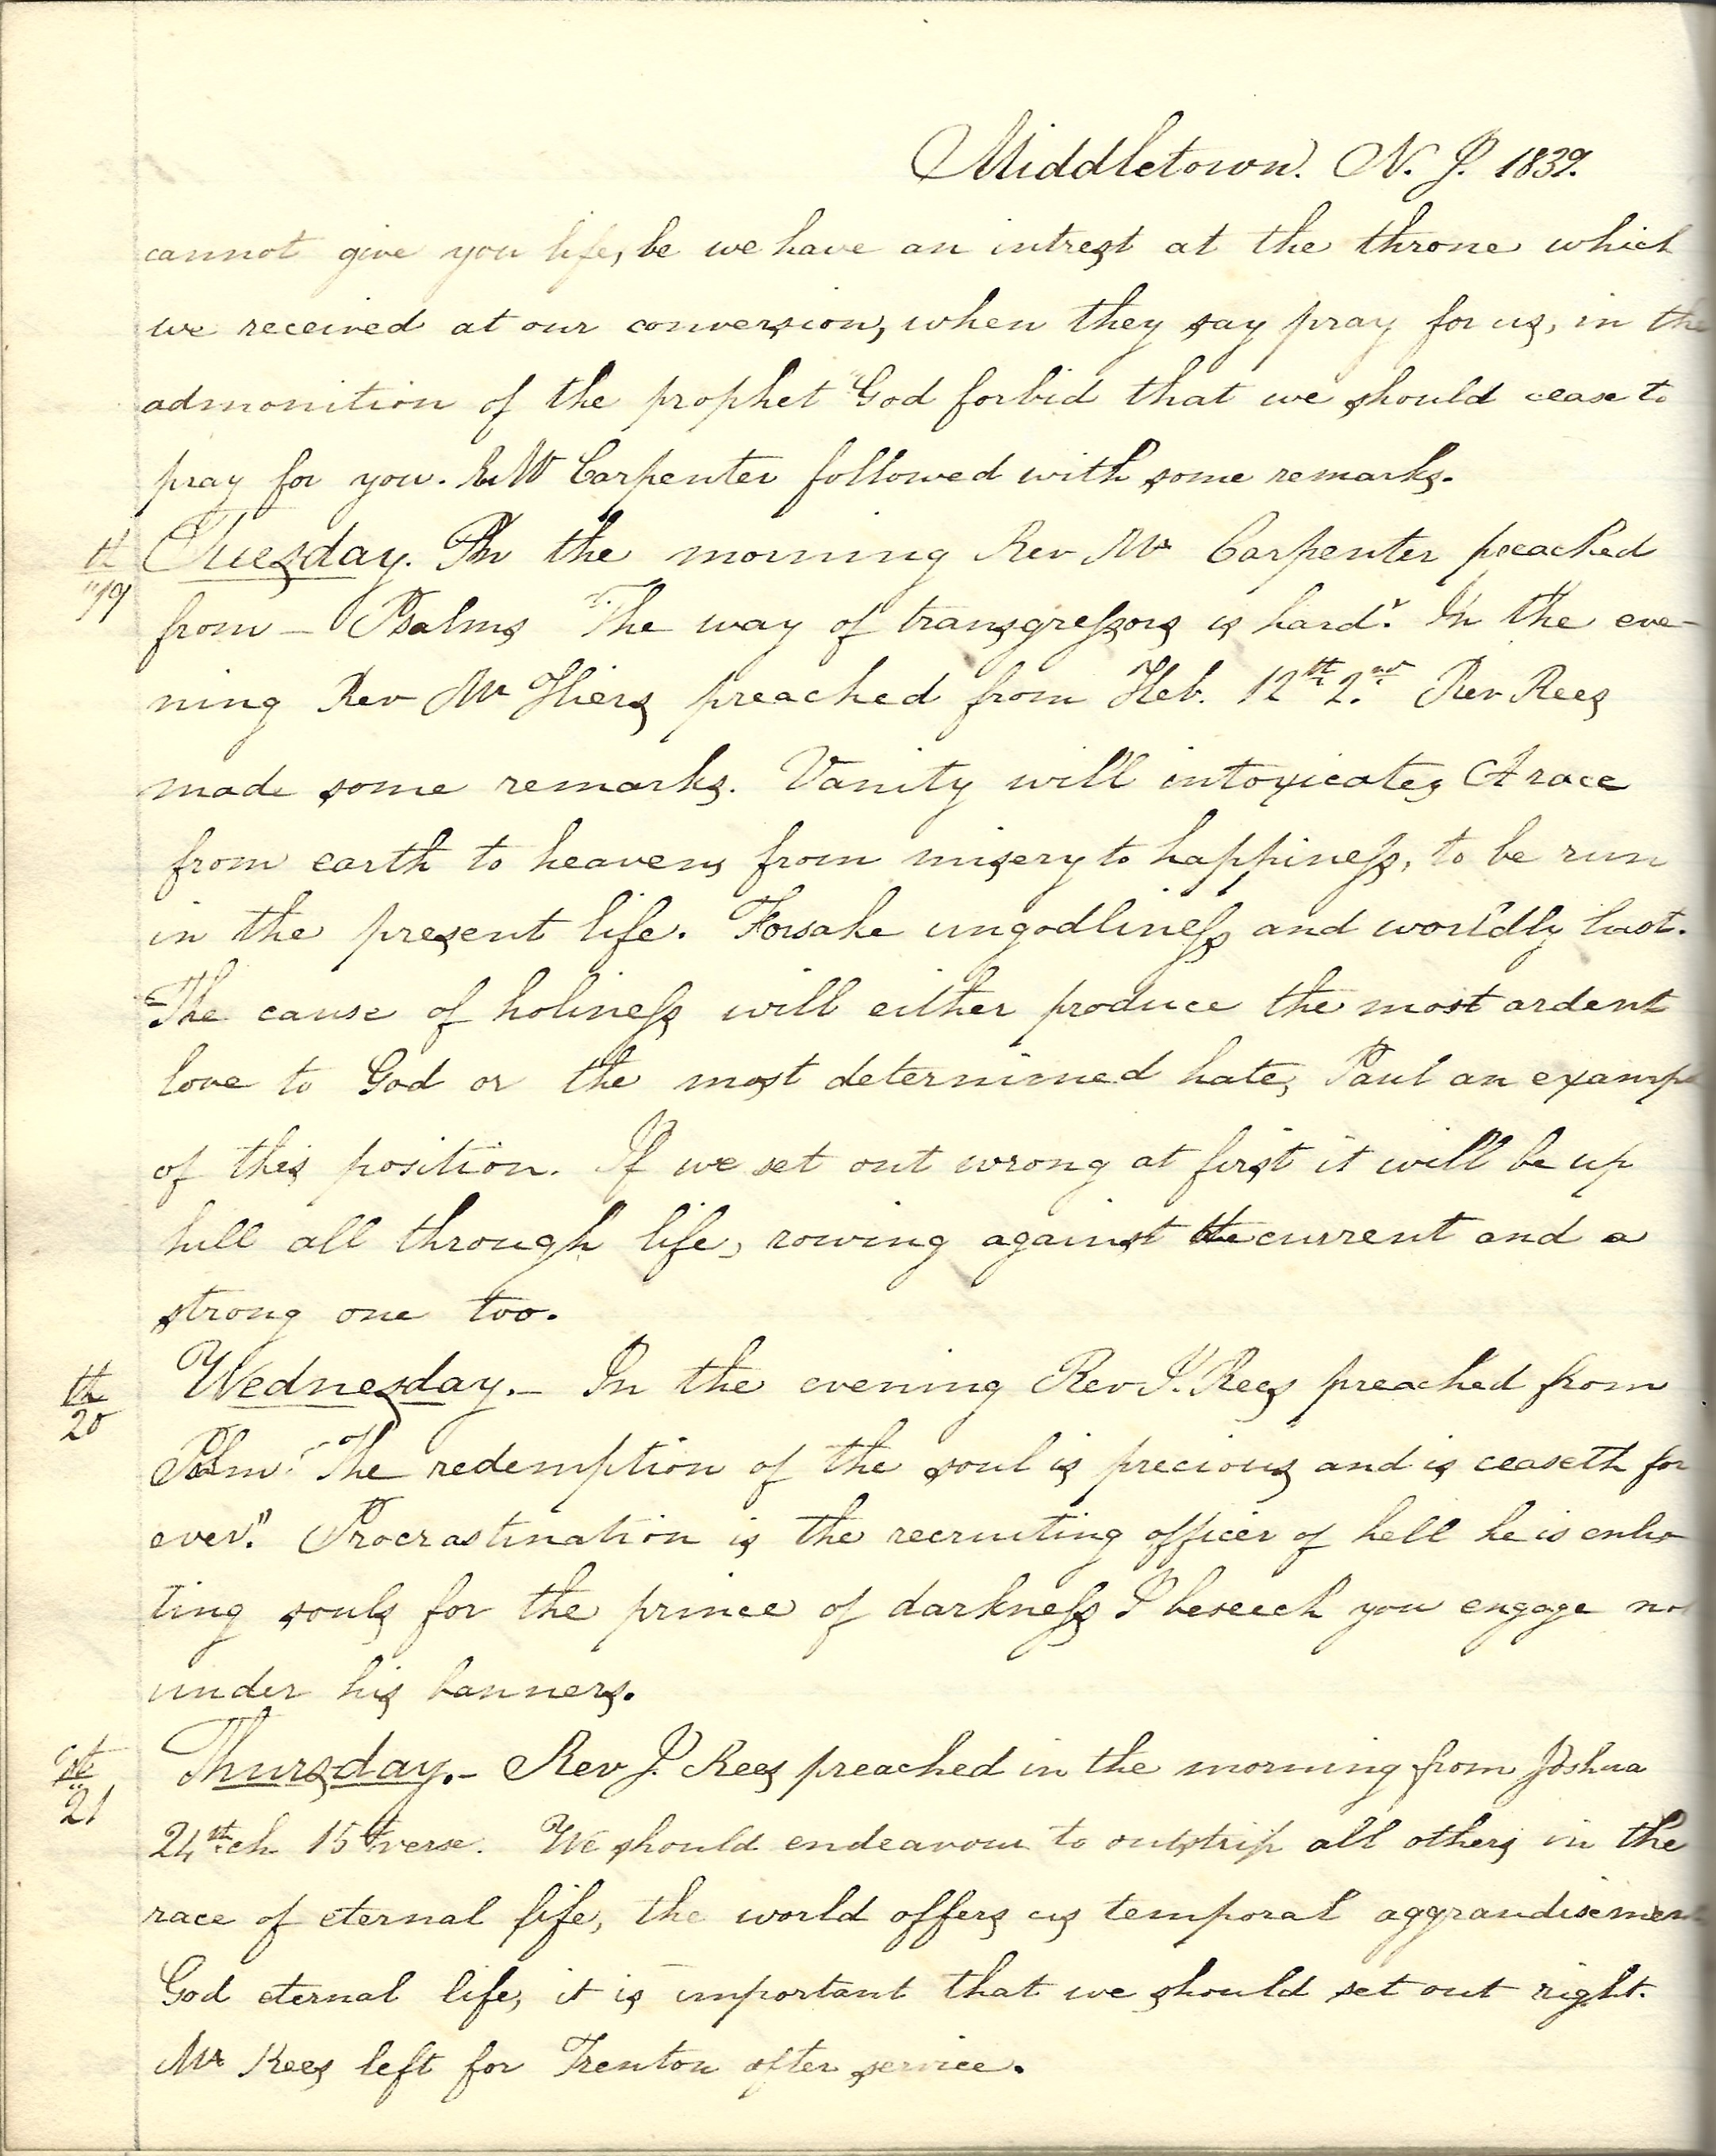 Middletown. N. J. 1839.
cannot give you life, be we have an intrest at the throne which
we received at our conversion, when they say pray for us, in the
admonition of the prophet "God forbid that we should cease to
pray for you. Carpenter followed with some remarks.
th Tuesday. In the morning Rev Mr Carpenter preached
"19 from — Psalms "The way of transgressors is hard." In the eve-
ning Rev Mr Hiers preached from Heb. 12th 2nd Rev Rees
made some remarks. Vanity will intoxicates A race
from earth to heavens from misery to happiness, to be run
in the present life. Forsake ungodliness and worldly lust.
The cause of holiness will either produce the most ardent
love to God or the most determined hate, Paul an examp
of this position. If we set out wrong at first it will be up
hill all through life, rowing against the current and a
strong one too.
th Wednesday. — In the evening Rev J. Rees preached from
20
Psalm. "The redemption of the soul is precious and is ceaseth for
ever." Procrastination is the recruiting officer of hell he is enlis
ting souls for the prince of darkness I beseech you engage not
under his banners.
st Thursday. — Rev J. Rees preached in the morning from Joshua
"21
24th ch 15th verse. We should endeavour to outstrip all others in the
race of eternal life, the world offers us temporal aggrandisement
God eternal life, it is important that we should set out right.
Mr Rees left for Trenton after service.